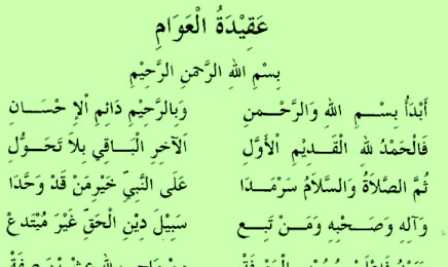 عَقِيْدَةُ الْعَوَامِ
بِسْمِ اللهِ الرَّحْمنِ الرَّحِيْمِ
أَبْدَأُ بِسْــمِ اللهِ وَالرَّحْــمنِ وَبِالرَّحِيْمِ دَائِمِ اْلإِ حْسَــانِ
فَالْحَمْدُ للهِ الْقَــدِيْمِ اْلأَوَّلِ اَلآخِرِ الْبَــاقِي بِلاَ تَحَــوُّلِ
ثُمَّ الصَّلاَةُ وَالسَّلاَمُ سَرْمَــدَا عَلَى النَّبِيِّ خَيْرِمَنْ قَدْ وَحَّدَا
وَآلِهِ وَصَــحْبِهِ وَمَــنْ تَبِــع سَبِيْلَ دِيْنِ الْحَقِّ غَيْرَ مُبْتَدِعْ